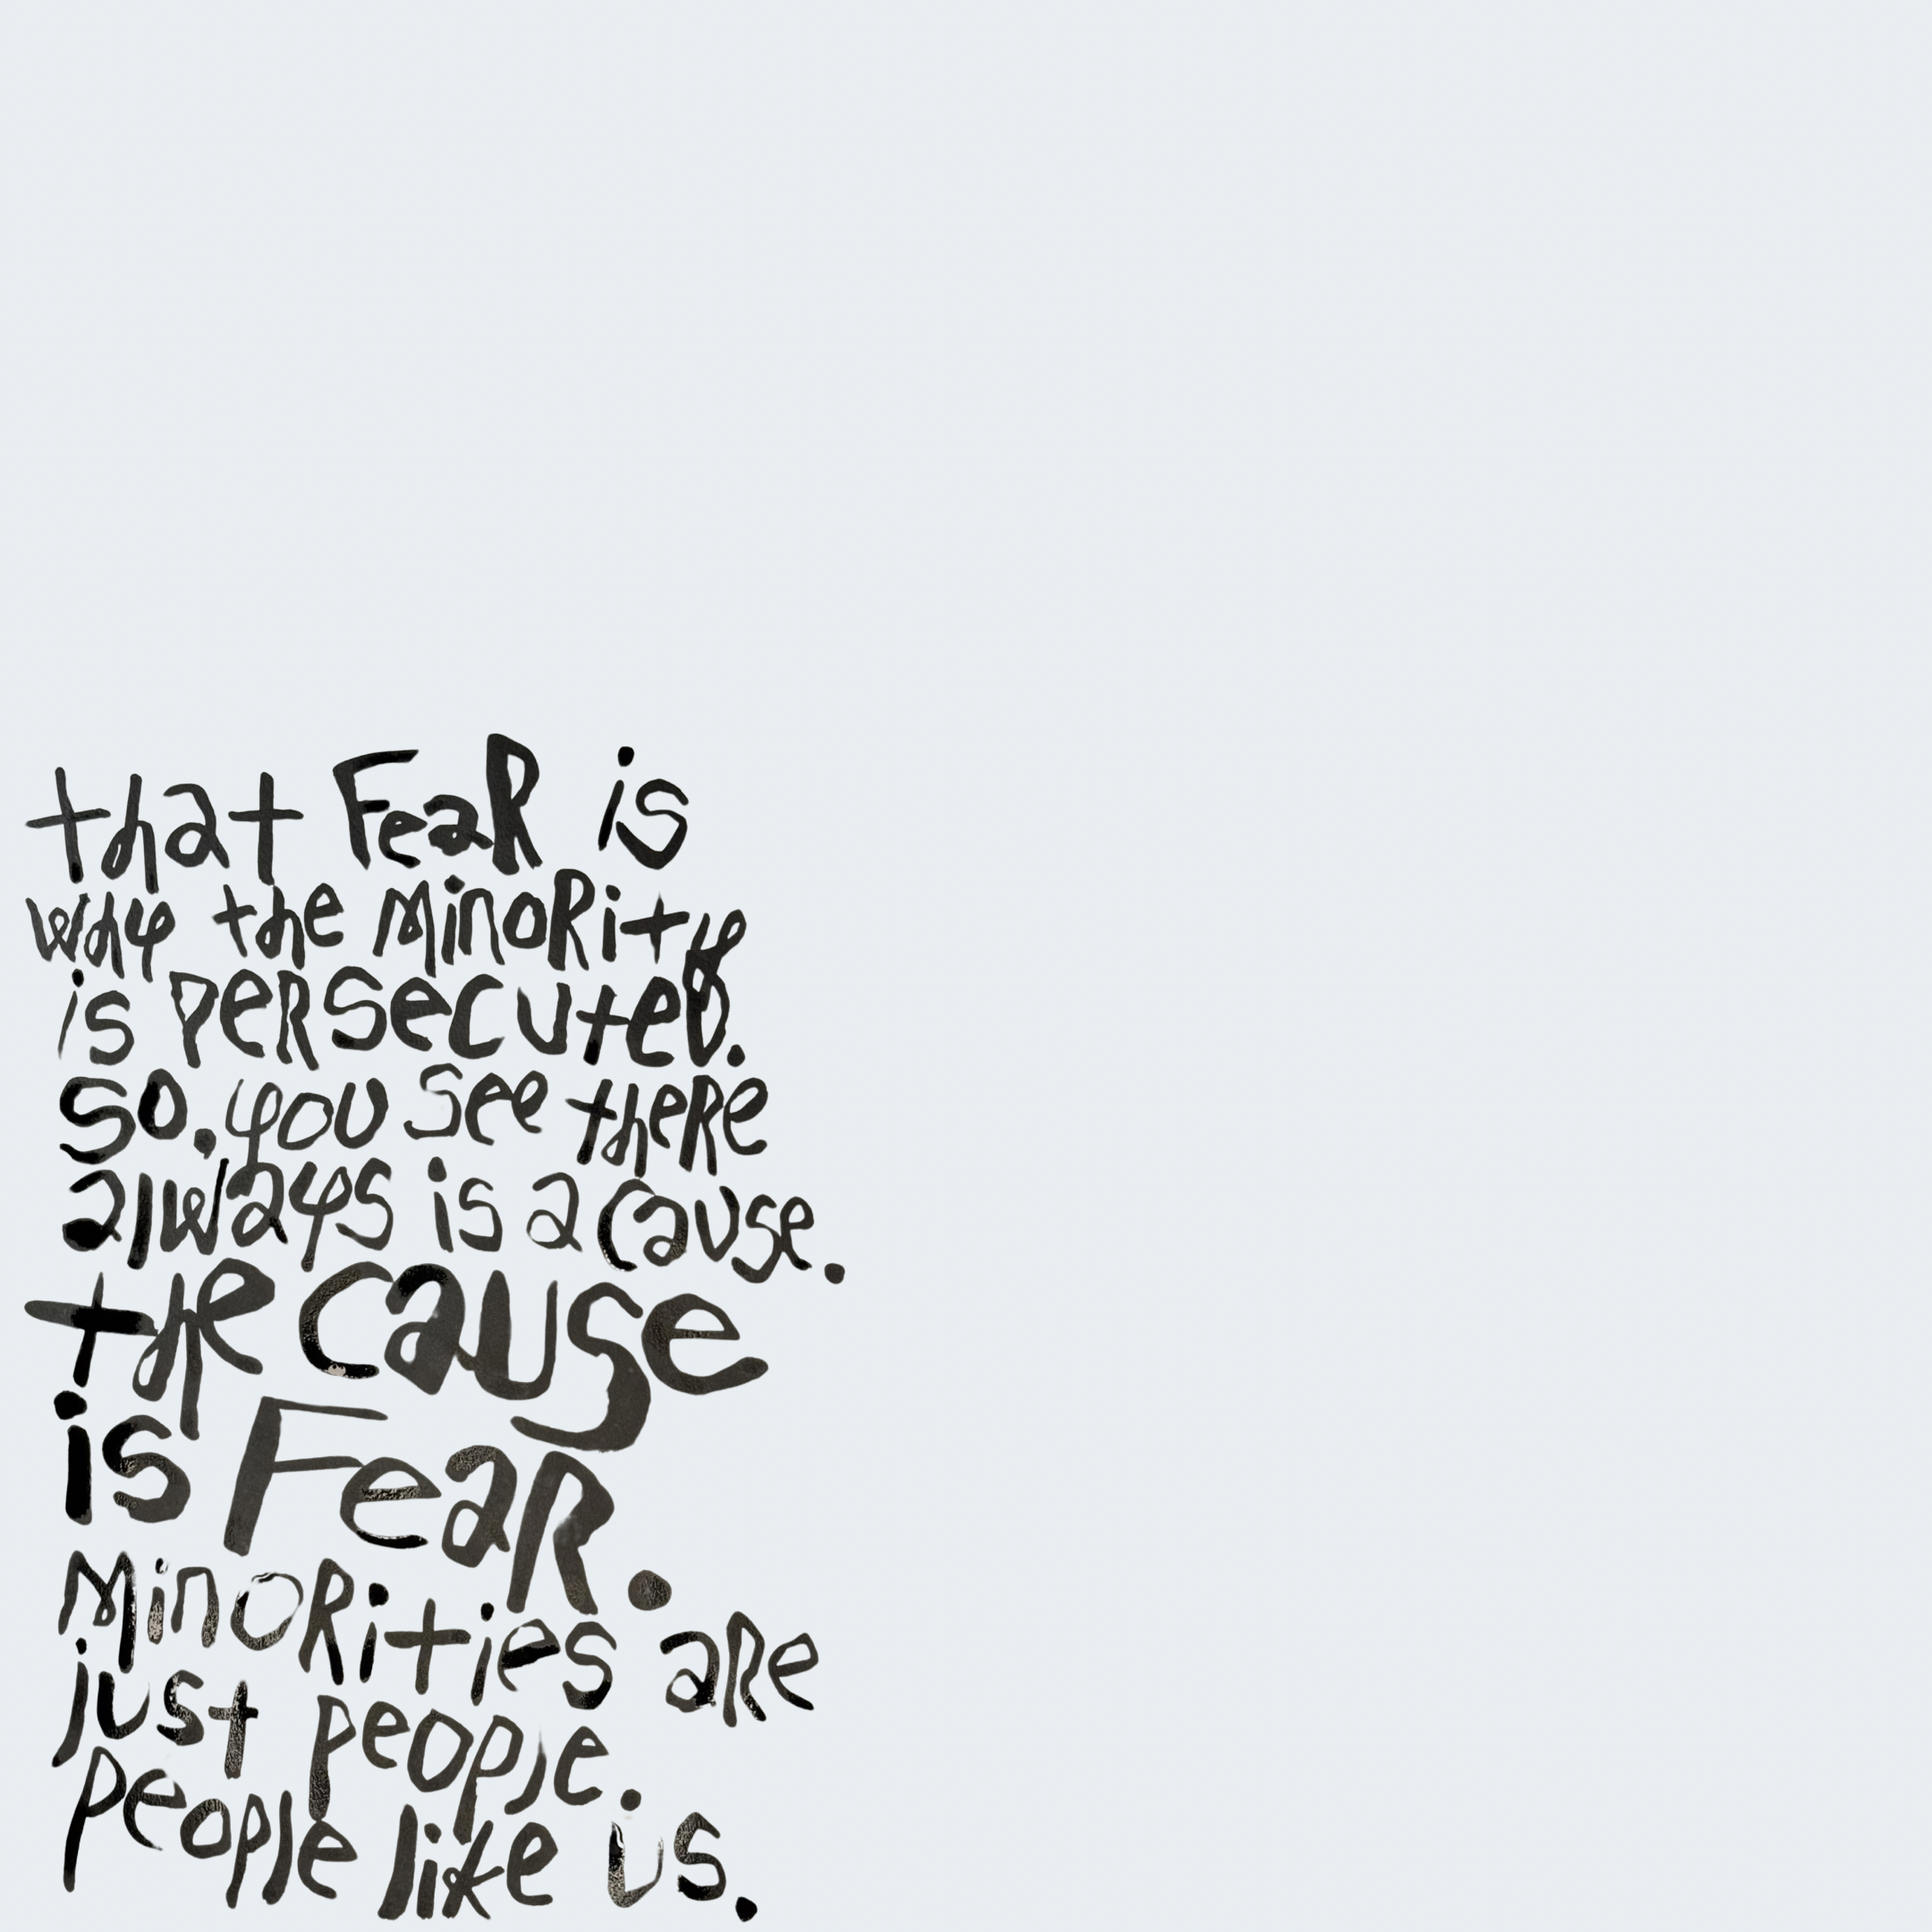 that FeaR is
why the MinoRity
is peRsecuteD.
so. you see theRe
always is a cause.
the cause
is FeaR.
MinoRities aRe
just people.
people like us.